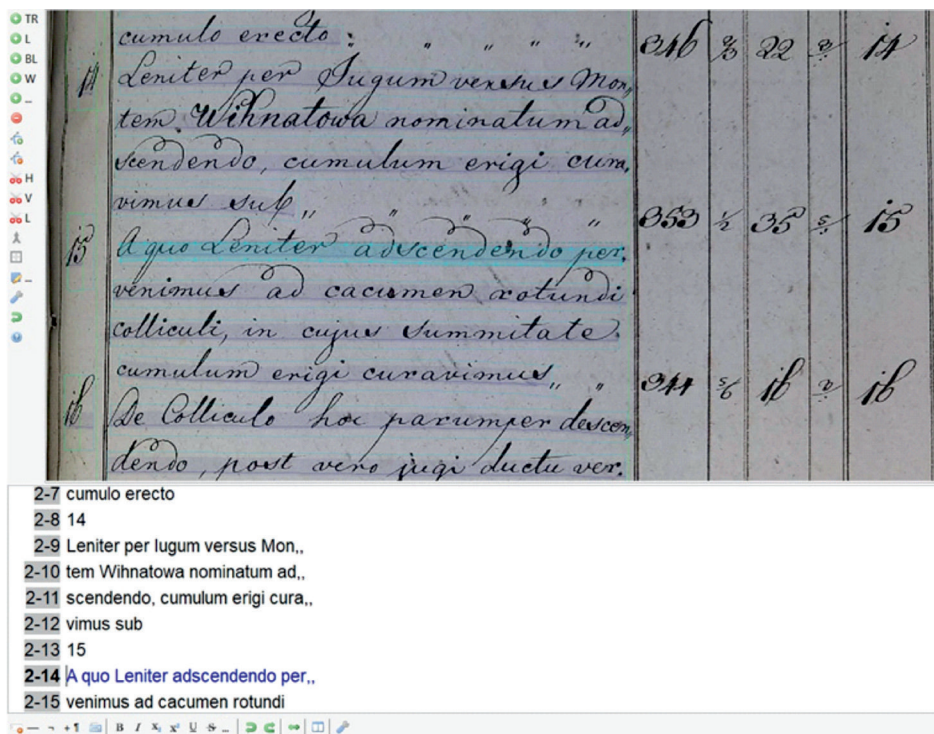 TR
L
BL
W
H
V
L
cumulo erecto : " " " " " 346 22 14
14 Leniter per Jugum versus Mon,,
tem Wihnatowa nominatum ad,,
scendendo, cumulum erigi cura,,
vimus sub,, " " " " 353 1/2 35 15
15 A quo Leniter adscendendo per,,
venimus ad cacumen rotundi
colliculi, in cujus summitate
cumulum erigi curavimus,, " 344 5/6 16 16
16 De Colliculo hoc parumper descen,,
dendo, post vero jugi ductu ver,,
2-7 cumulo erecto
2-8 14
2-9 Leniter per Iugum versus Mon,,
2-10 tem Wihnatowa nominatum ad,,
2-11 scendendo, cumulum erigi cura,,
2-12 vimus sub
2-13 15
2-14 A quo Leniter adscendendo per,,
2-15 venimus ad cacumen rotundi
B I X₁ x¹ U S